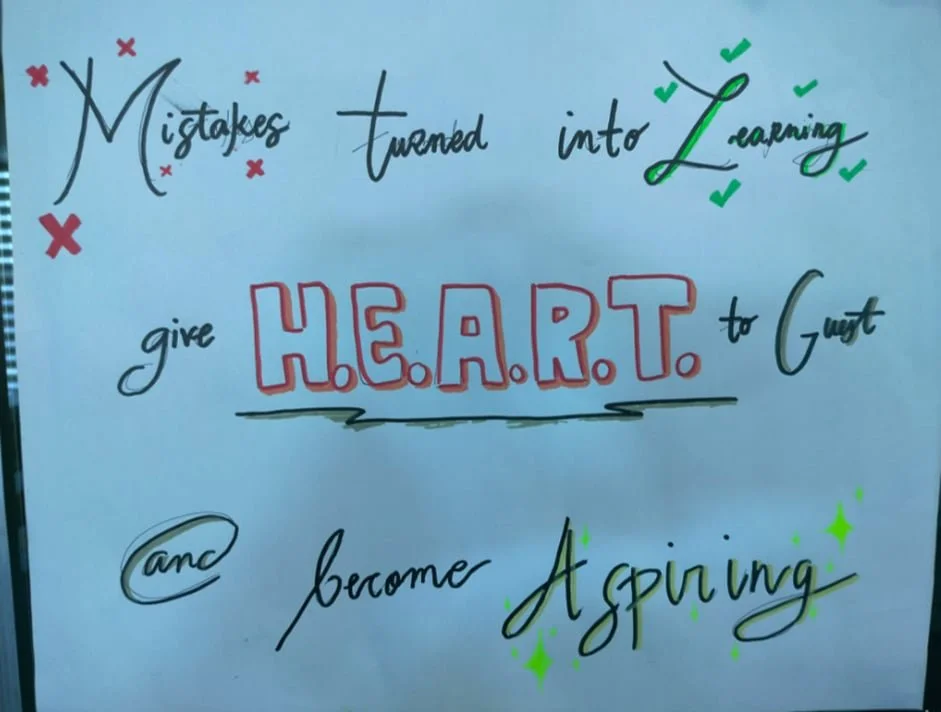 Mistakes turned into Learning
give H.E.A.R.T. to Guest
and become Aspiring